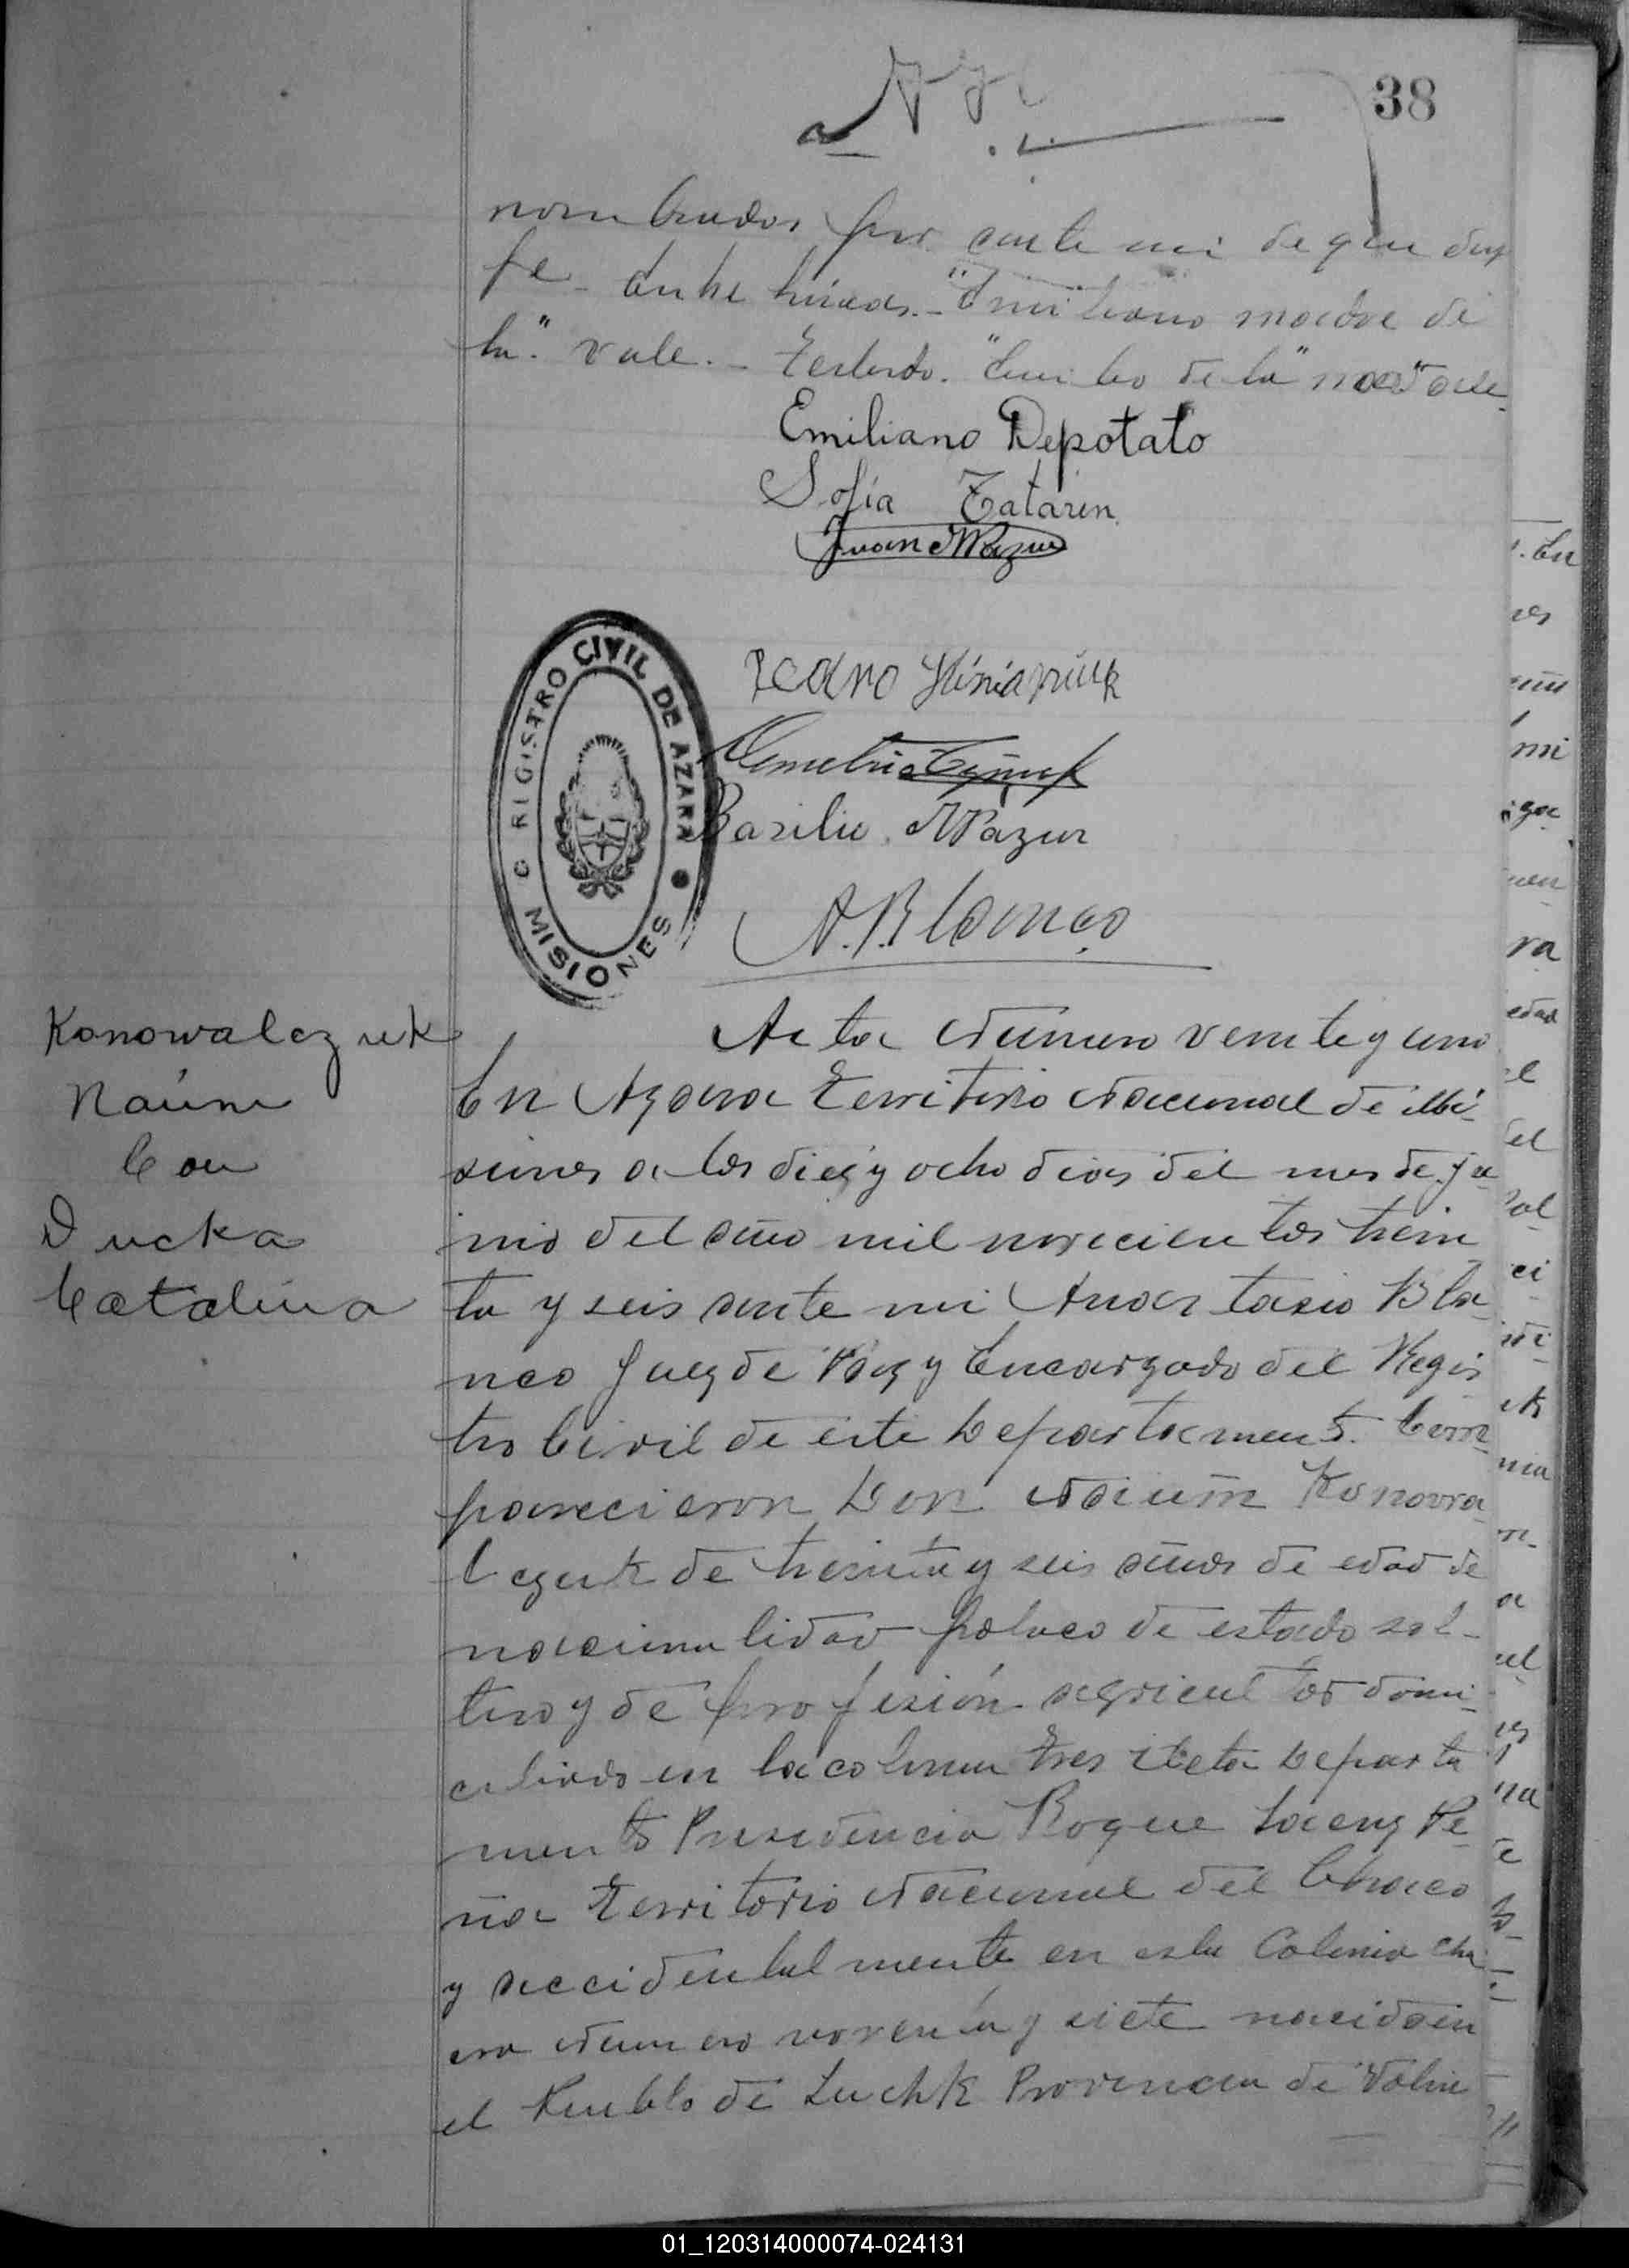 38
nombrados por ante mi de que doy
fe - Entre lineas.- "Emiliano madre de
la" vale. - Testado. "de la" no vale.
Emiliano Depotato
Sofía Tatarin
Juan Mazur
REGISTRO CIVIL DE AZARA
MISIONES
Pedro
Demetrio
Basilio Mazur
A. Blanco
Konowalczuk
Naúm
Con
Ducka
Catalina
Acta Número veinte y uno
En Azara Territorio Nacional de Mi-
siones a los diez y ocho dias del mes de Ju-
nio del año mil novecientos trein
ta y seis ante mi Anastasio Bla-
nco Juez de Paz y Encargado del Regis
tro Civil de este Departamento. Com-
parecieron Don Naium Konowa-
lczuk de treinta y seis años de edad de
nacionalidad polaco de estado sol-
tero y de profesión agricultor domi-
ciliado en la colonia tres Departa
mento Presidencia Roque Saenz Pe-
ña Territorio Nacional del Chaco
y accidentalmente en esta Colonia cha-
cra Numero noventa y siete nacido en
el Pueblo de Luchk Provincia de Volin
01_120314000074-024131